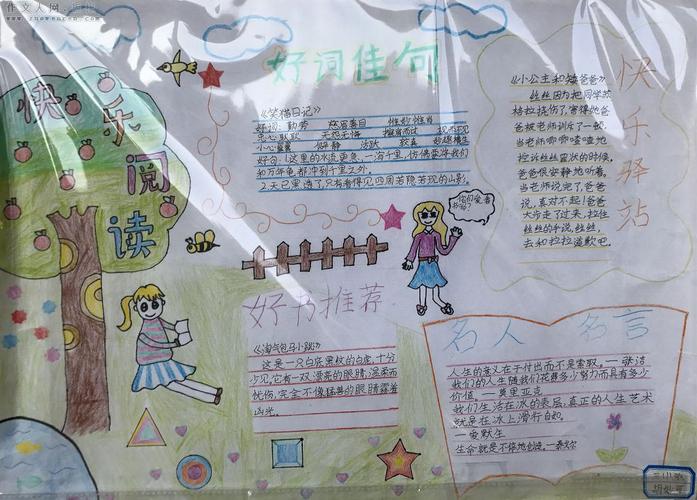 作文人网
www.zuowenren.com
快乐阅读
好词佳句
《笑猫日记》
好词：勤劳 惟妙惟肖
无怨无悔
小心翼翼
好句：1.这里的水流更急，一泻千里，仿佛要将我们
和万年龟都冲到千里之外。
2.天已黑海了，只有看得见四周若隐若现的山影。
快乐驿站
《小公主和矮爸爸》
丝丝因为把同学苏
格拉挠伤了，害得他爸
爸被老师训斥了一顿，
当老师唧唧喳喳地
控诉丝丝罪状的时候，
爸爸很安静地听着。
当老师说完了，爸爸
说，真对不起！爸爸
大步走了过来，拉住
丝丝的手说，丝丝，
去和拉拉道歉吧。
你们爱看
书吗？
好书推荐
《淘气包马小跳》
这是一只白底黑纹的白虎，十分
少见，它有一双漂亮的眼睛，温柔而
忧伤，完全不像猛兽的眼睛露着
凶光。
名人名言
人生的意义在于付出而不是索取。—张洁
我们的人生随我们花费多少努力而具有多少
价值。—莫里亚克
我们生活在冰的表层，真正的人生艺术
就是在冰上滑行自如。
—爱默生
生命就是不停地创造。—泰戈尔